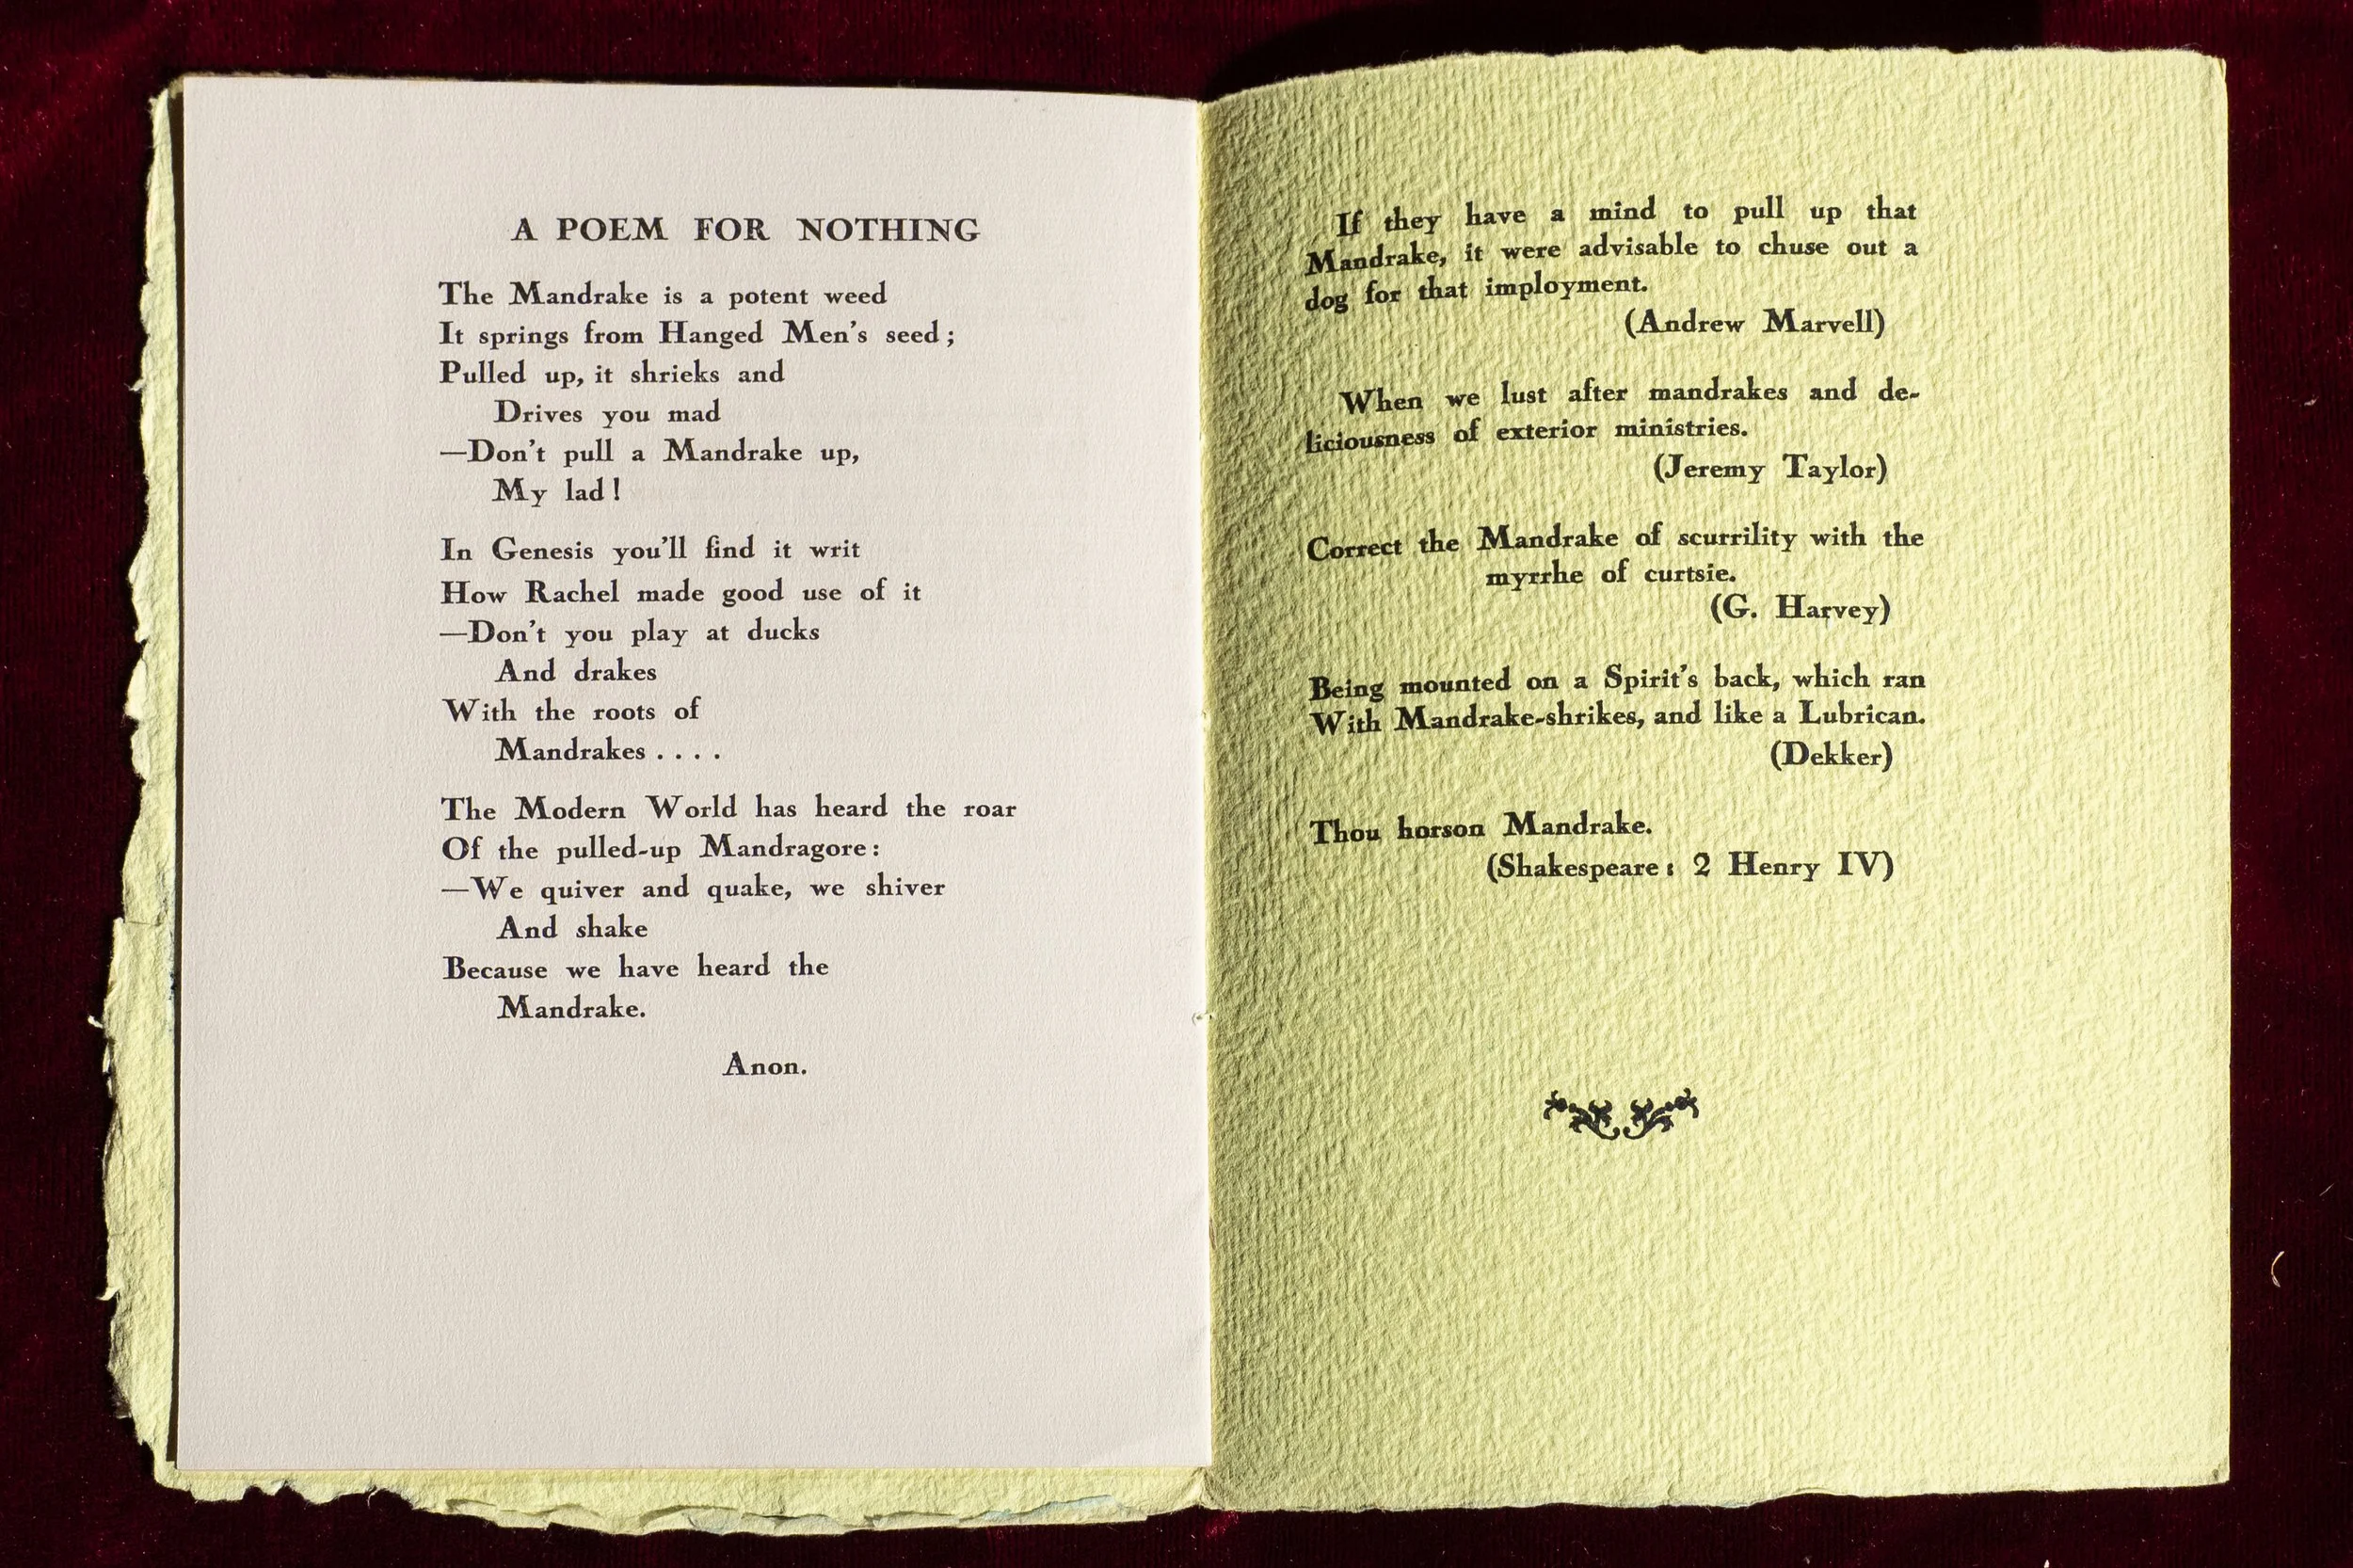 A POEM FOR NOTHING
The Mandrake is a potent weed
It springs from Hanged Men's seed;
Pulled up, it shrieks and
Drives you mad
—Don't pull a Mandrake up,
My lad!
In Genesis you'll find it writ
How Rachel made good use of it
—Don't you play at ducks
And drakes
With the roots of
Mandrakes . . . .
The Modern World has heard the roar
Of the pulled-up Mandragore:
—We quiver and quake, we shiver
And shake
Because we have heard the
Mandrake.
Anon.
If they have a mind to pull up that
Mandrake, it were advisable to chuse out a
dog for that imployment.
(Andrew Marvell)
When we lust after mandrakes and de-
liciousness of exterior ministries.
(Jeremy Taylor)
Correct the Mandrake of scurrility with the
myrrhe of curtsie.
(G. Harvey)
Being mounted on a Spirit's back, which ran
With Mandrake-shrikes, and like a Lubrican.
(Dekker)
Thou horson Mandrake.
(Shakespeare: 2 Henry IV)